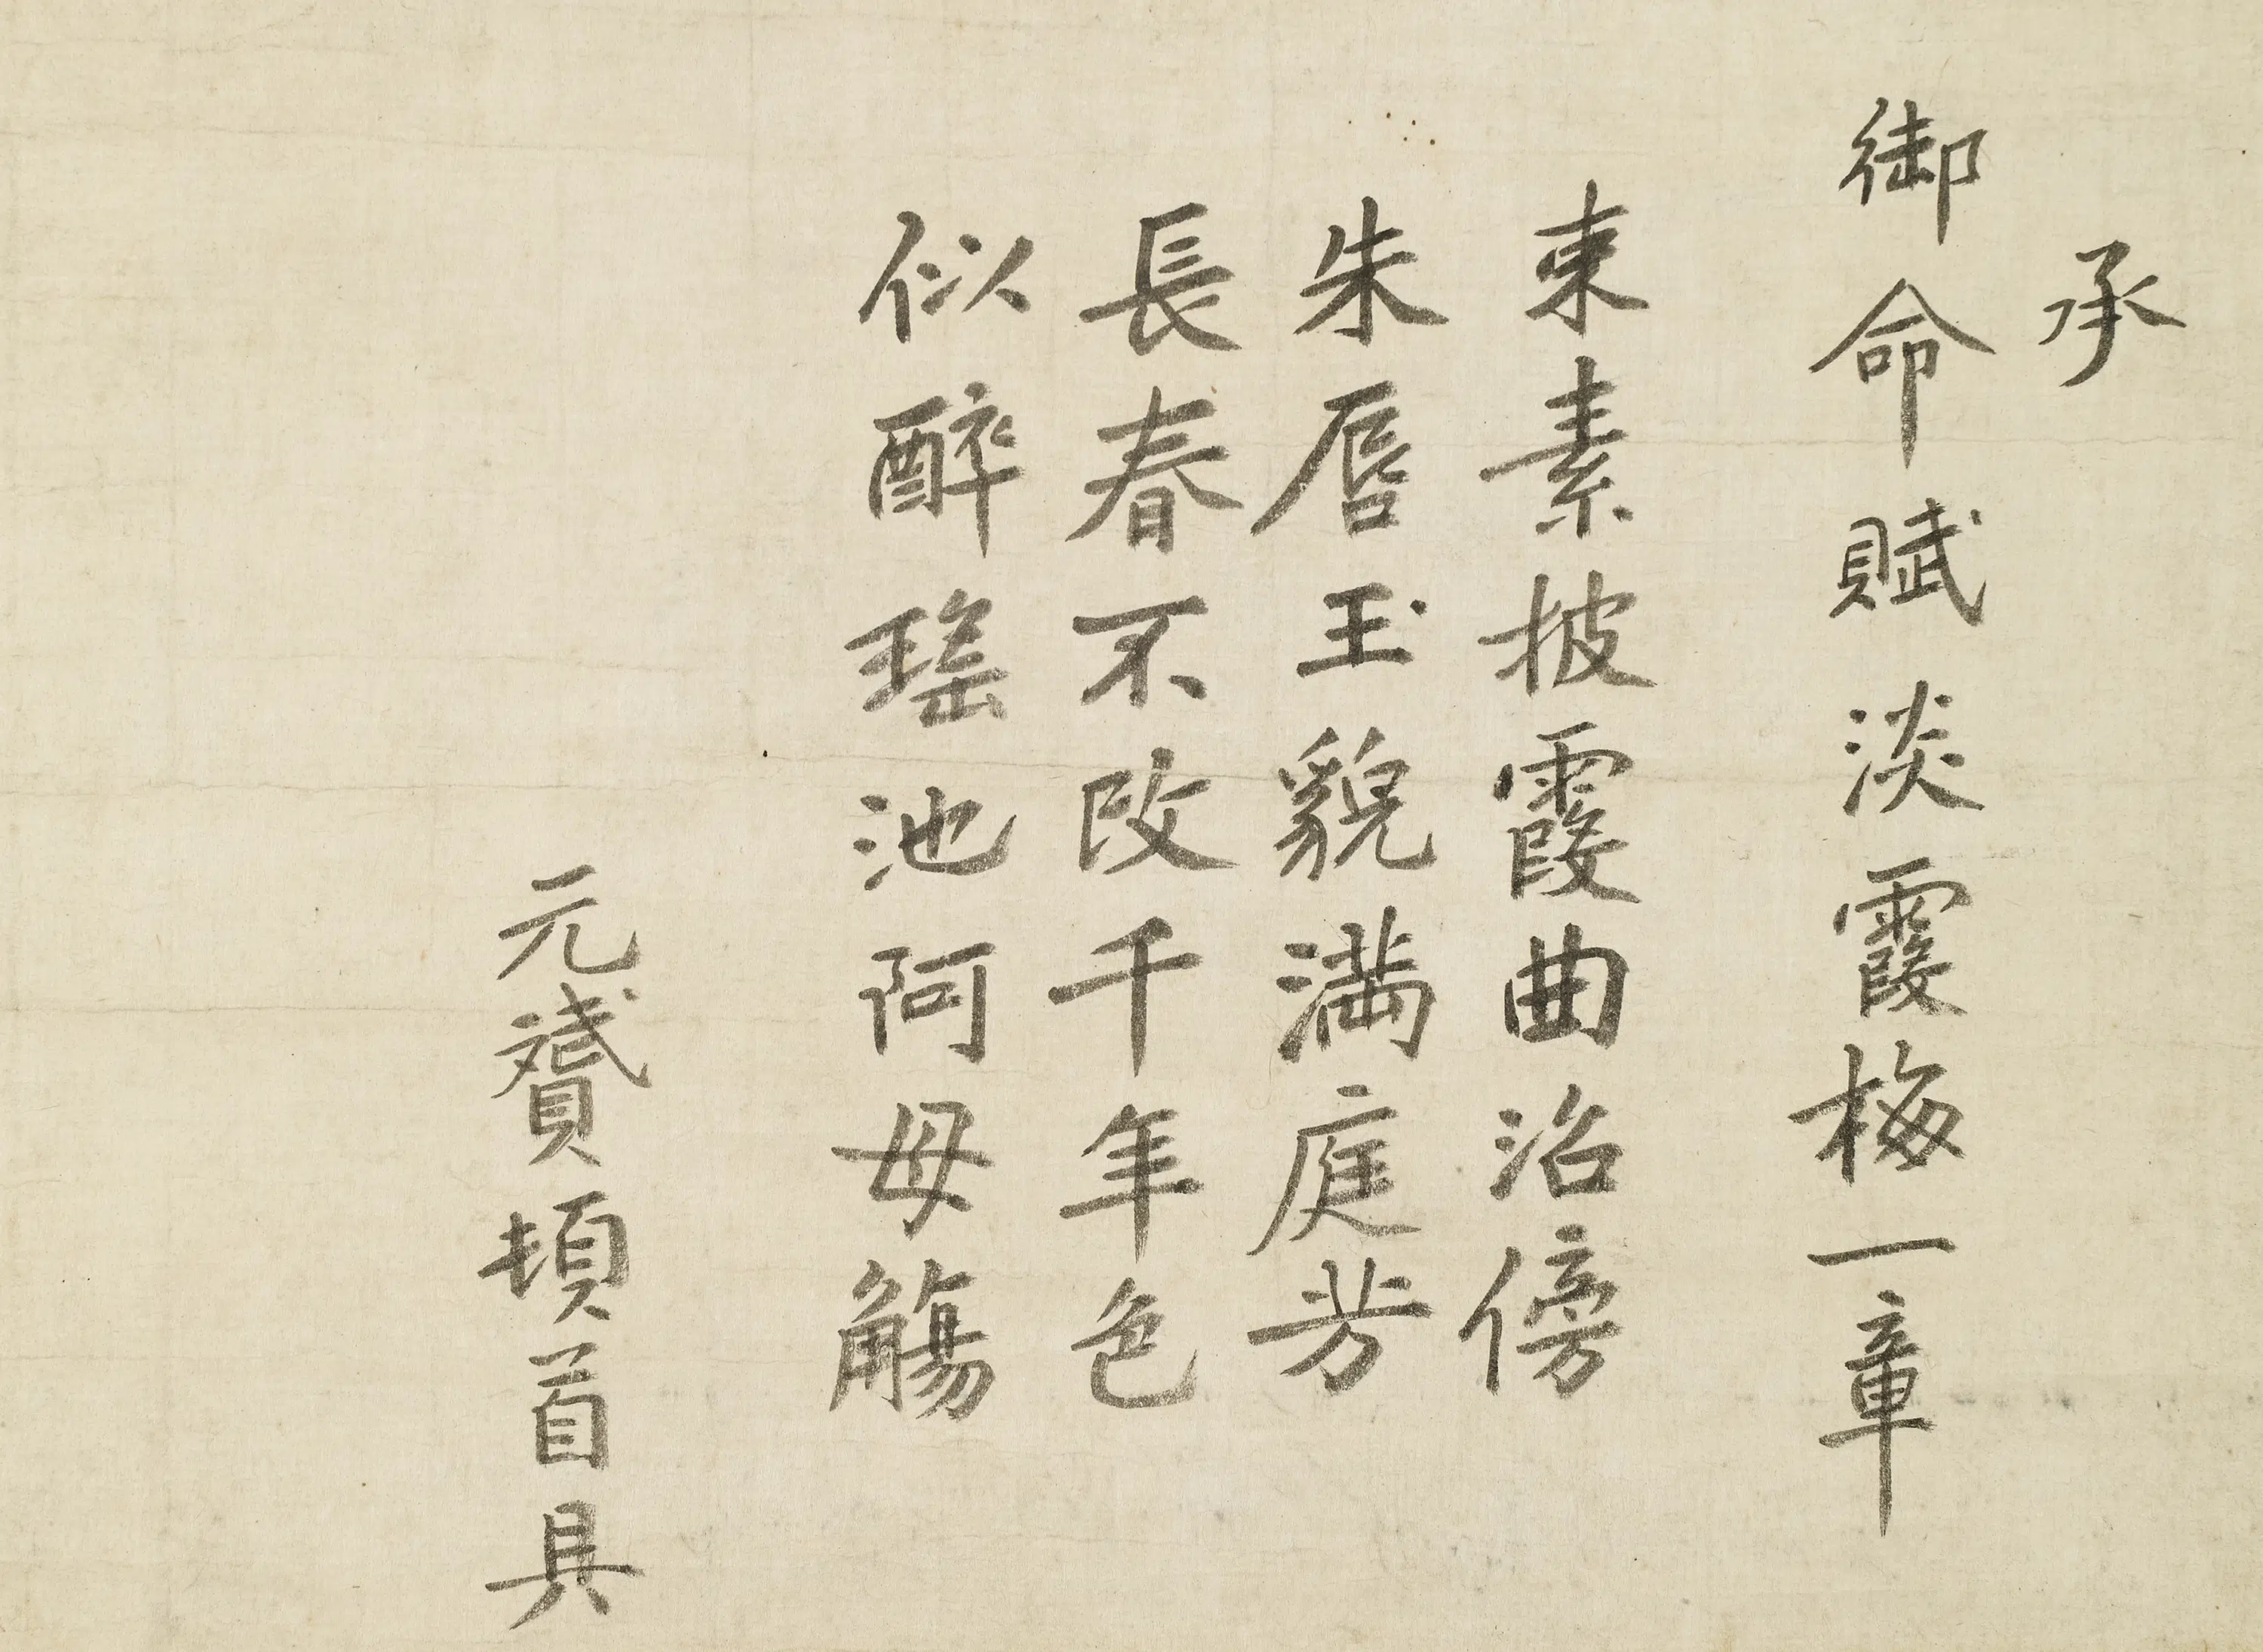 承
御命賦淡霞梅一章
束素披霞曲沼傍
朱唇玉貌満庭芳
長春不改千年色
似醉瑤池阿母觴
元贇頓首具